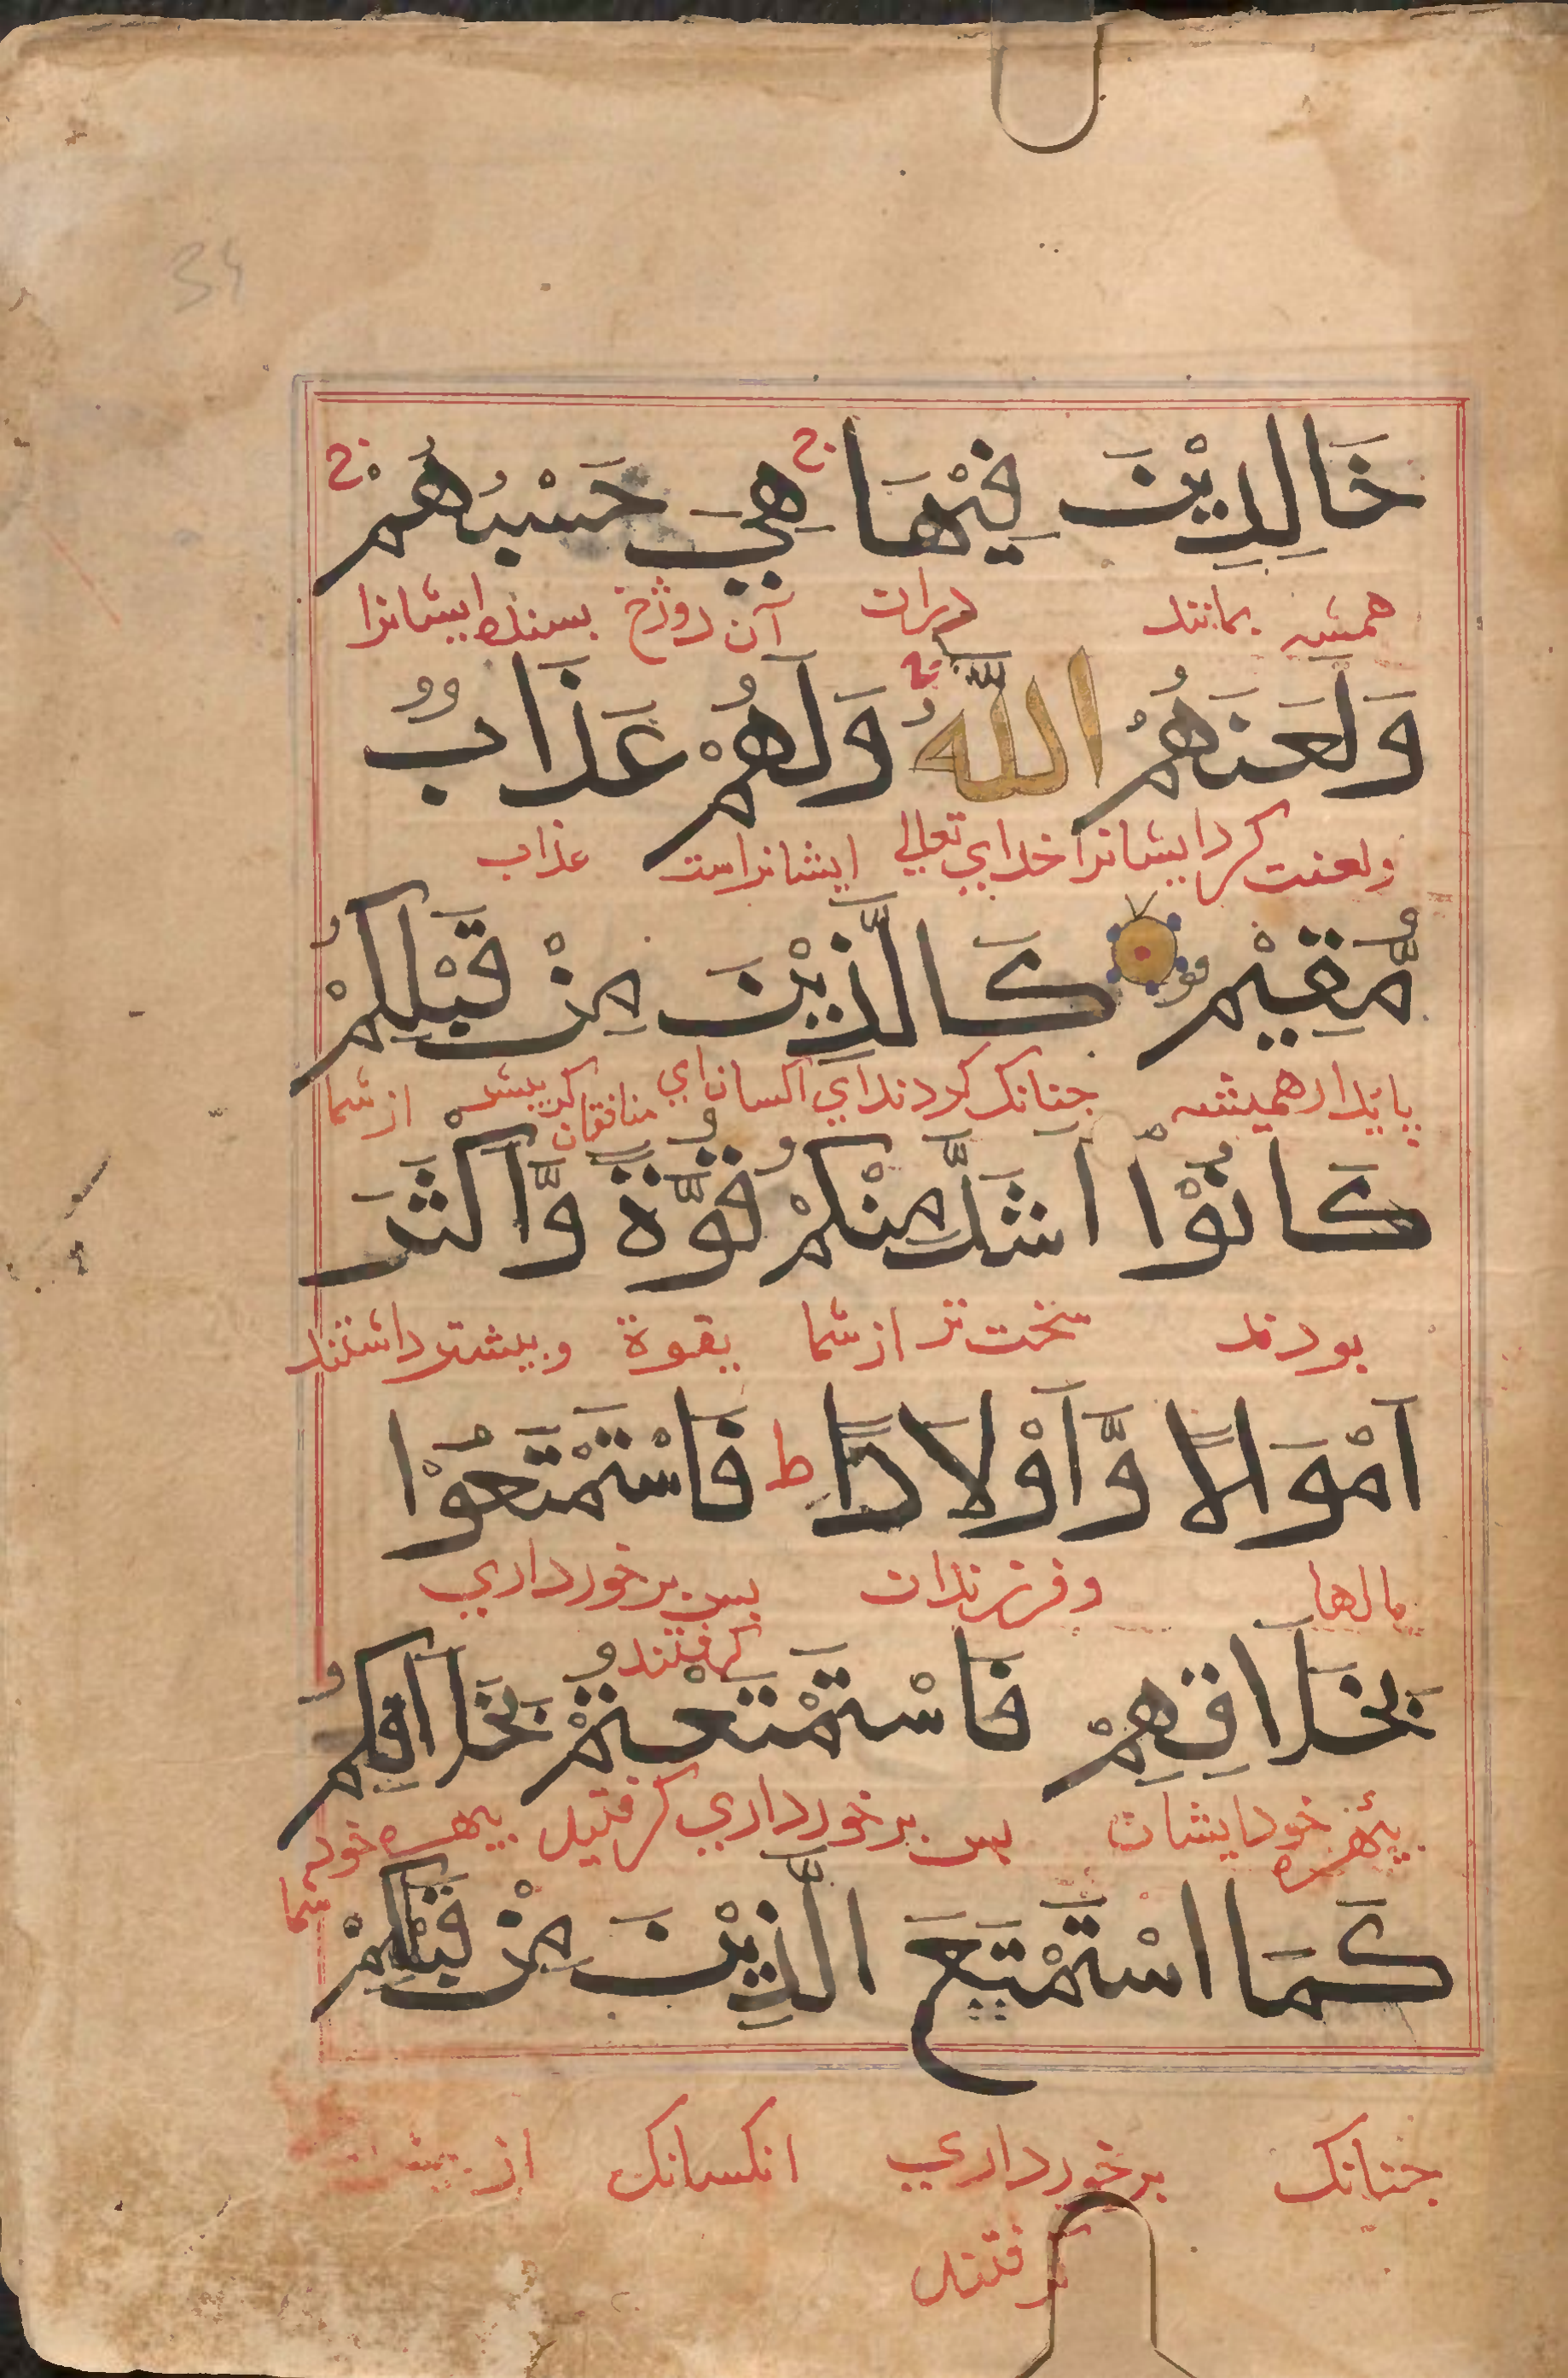 34
خَالِدِيْنَ فِيْهَا ج هِيَ حَسْبُهُمْ ج
همیشه بمانند دران آن دوزخ بسنده ایشانرا
وَلَعَنَهُمُ اللّٰهُ ج وَلَهُمْ عَذَابٌ
ولعنت کرد ایشانرا خدای تعالی ایشانراست عذاب
مُّقِيْمٌ كَالَّذِيْنَ مِنْ قَبْلِكُمْ
پایدار همیشه جنانک کردند ای کسان ای منافقان که پیش از شما
كَانُوْا اَشَدَّ مِنْكُمْ قُوَّةً وَّاَكْثَرَ
بودند سخت تر از شما بقوة وبیشتر داشتند
اَمْوَالًا وَّاَوْلَادًا ط فَاسْتَمْتَعُوْا
مالها وفرزندان بس برخورداری گرفتند
بِخَلَاقِهِمْ فَاسْتَمْتَعْتُمْ بِخَلَاقِكُمْ
ببهره خود ایشان بس برخورداری گرفتید ببهره خود شما
كَمَا اسْتَمْتَعَ الَّذِيْنَ مِنْ قَبْلِكُمْ
جنانک برخورداری انکسانک از پیش
گرفتند